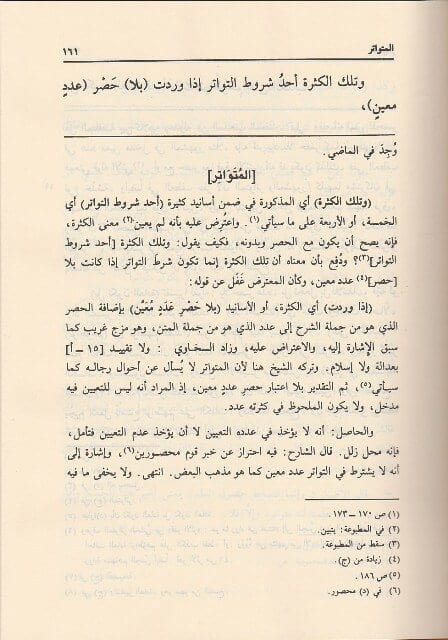 المتواتر ١٦١
وتلك الكثرة أحدُ شروط التواتر إذا وردت (بلا) حَصْر (عددٍ
معين)،
وُجِدَ في الماضي.
[المُتَوَاتِر]
(وتلك الكثرة) أي المذكورة في ضمن أسانيد كثيرة (أحد شروط التواتر) أي
الخمسة، أو الأربعة على ما سيأتي(١). واعتُرض عليه بأنه لم يعين(٢) معنى الكثرة،
فإنه يصح أن يكون مع الحصر وبدونه، فكيف يقول: وتلك الكثرة [أحد شروط
التواتر](٣)؟ ودُفع بأن معناه أن تلك الكثرة إنما تكون شرطَ التواتر إذا كانت بلا
[حصر](٤) عدد معين، وكأن المعترض غَفَل عن قوله:
(إذا وردت) أي الكثرة، أو الأسانيد (بلا حَصْرِ عَدَدٍ مُعَيَّن) بإضافة الحصر
الذي هو من جملة الشرح إلى عدد الذي هو من جملة المتن، وهو مزج غريب كما
سبق الإشارة إليه، والاعتراض عليه، وزاد السخاوي : ولا تقييد [١٥ - أ]
بعدالة ولا إسلام. وتركه الشيخ هنا لأن المتواتر لا يُسأل عن أحوال رجاله كما
سيأتي(٥)، ثم التقدير بلا اعتبار حصرِ عددٍ معين، إذ المراد أنه ليس للتعيين فيه
مدخل، ولا يكون الملحوظ في كثرته عدد.
والحاصل: أنه لا يؤخذ في عدده التعيين لا أن يؤخذ عدم التعيين فتأمل،
فإنه محل زلل. قال الشارح: فيه احتراز عن خبر قوم محصورين(٦)، وإشارة إلى
أنه لا يشترط في التواتر عدد معين كما هو مذهب البعض. انتهى. ولا يخفى ما فيه
(١) ص ١٧٠ - ١٧٣.
(٢) في المطبوعة: يتبين.
(٣) سقط من المطبوعة.
(٤) زيادة من (ج).
(٥) ص ١٨٦.
(٦) في (د) محصور.